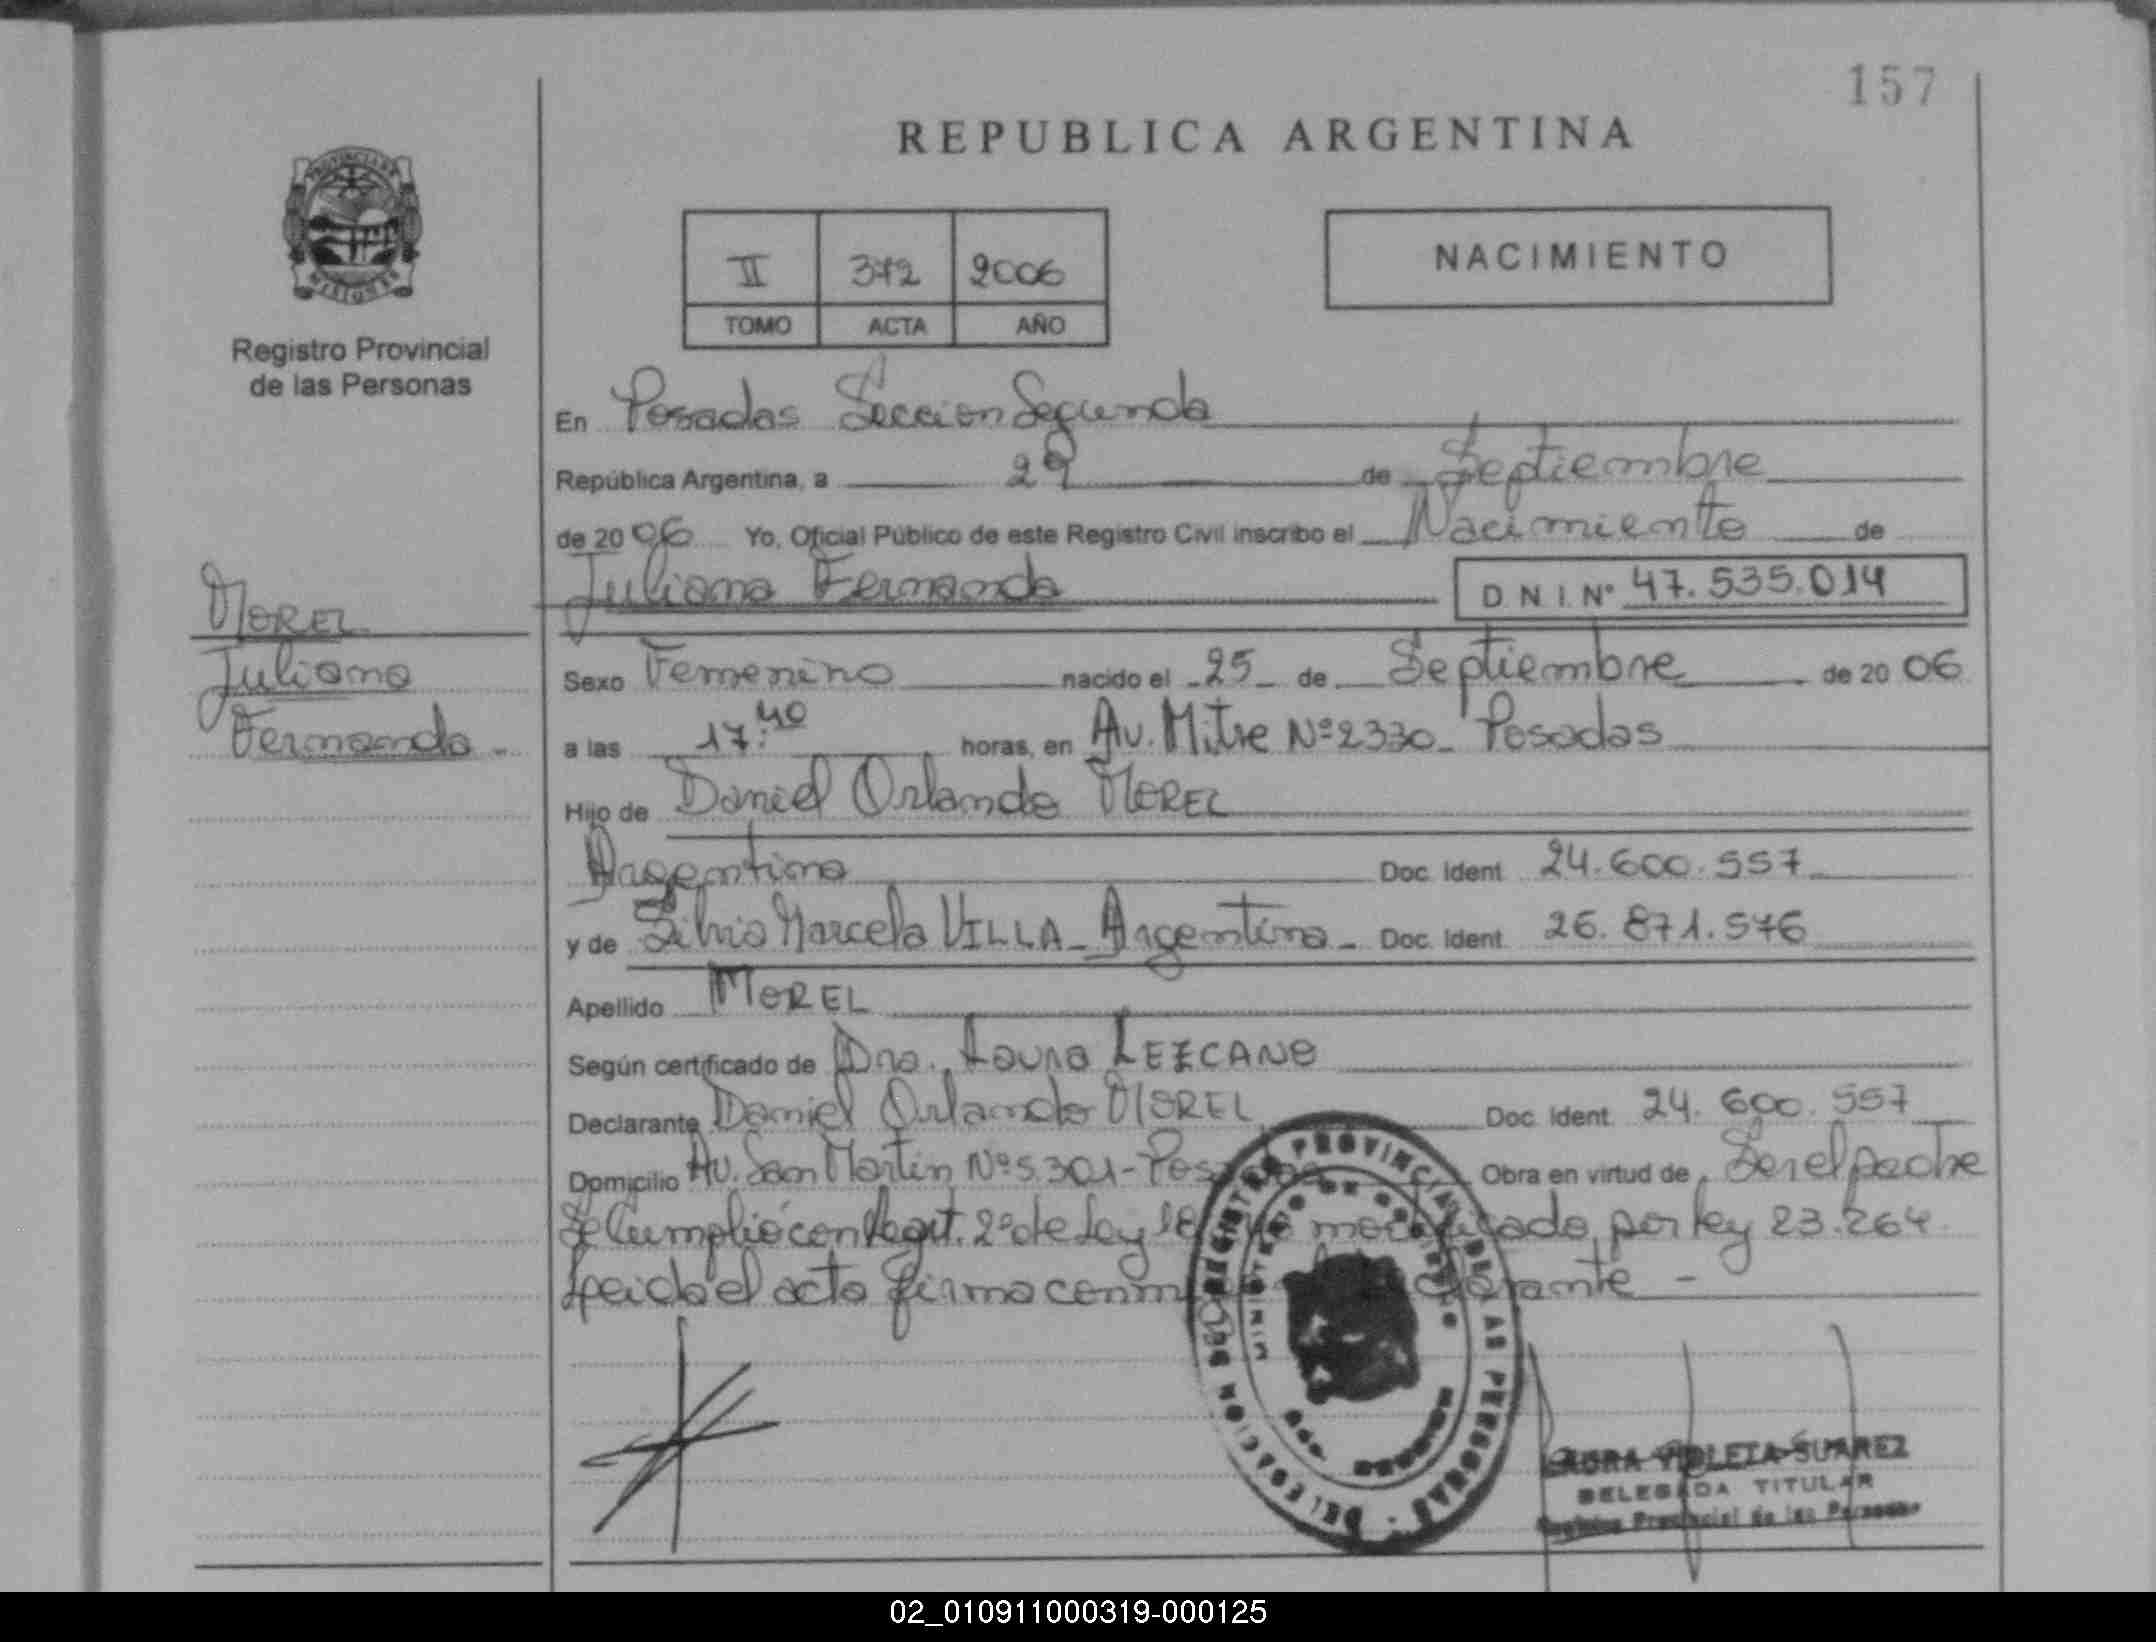 157
REPUBLICA ARGENTINA
PROVINCIA DE
MISIONES
II 372 2006
TOMO ACTA AÑO
NACIMIENTO
Registro Provincial
de las Personas
En Posadas Seccion Segunda
República Argentina, a 29 de Septiembre
de 2006 Yo, Oficial Público de este Registro Civil inscribo el Nacimiento de
Juliana Fernanda D N I. Nº 47.535.014
MOREL
Juliana
Fernanda -
Sexo Femenino nacido el 25 de Septiembre de 20 06
a las 17:40 horas, en Av. Mitre Nº 2330_ Posadas
Hijo de Daniel Orlando MOREL
Argentino Doc. Ident. 24.600.557
y de Silvia Marcela VILLA_ Argentina_ Doc. Ident. 26.871.576
Apellido MOREL
Según certificado de Dra. Laura LEZCANO
Declarante Daniel Orlando MOREL Doc. Ident. 24.600.557
Domicilio Av. San Martin Nº 5.301- Obra en virtud de Ser el padre
Se Cumplió con el art. 2º de Ley 18 por ley 23.264
Leida el acta firma
REGISTRO PROVINCIAL DE LAS PERSONAS
MINISTERIO DE GOBIERNO
DELEGACION
LAURA VIOLETA SUAREZ
DELEGADA TITULAR
Registro Provincial de las Personas
02_010911000319-000125